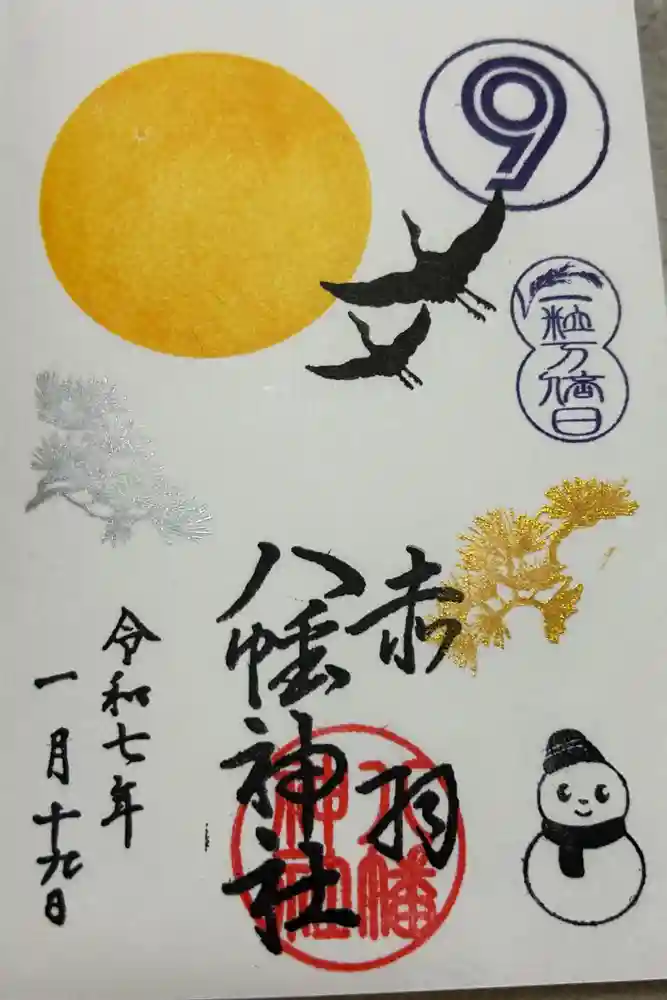 9
一粒万倍日
赤羽
八幡神社
八幡
神社
令和七年
一月十九日